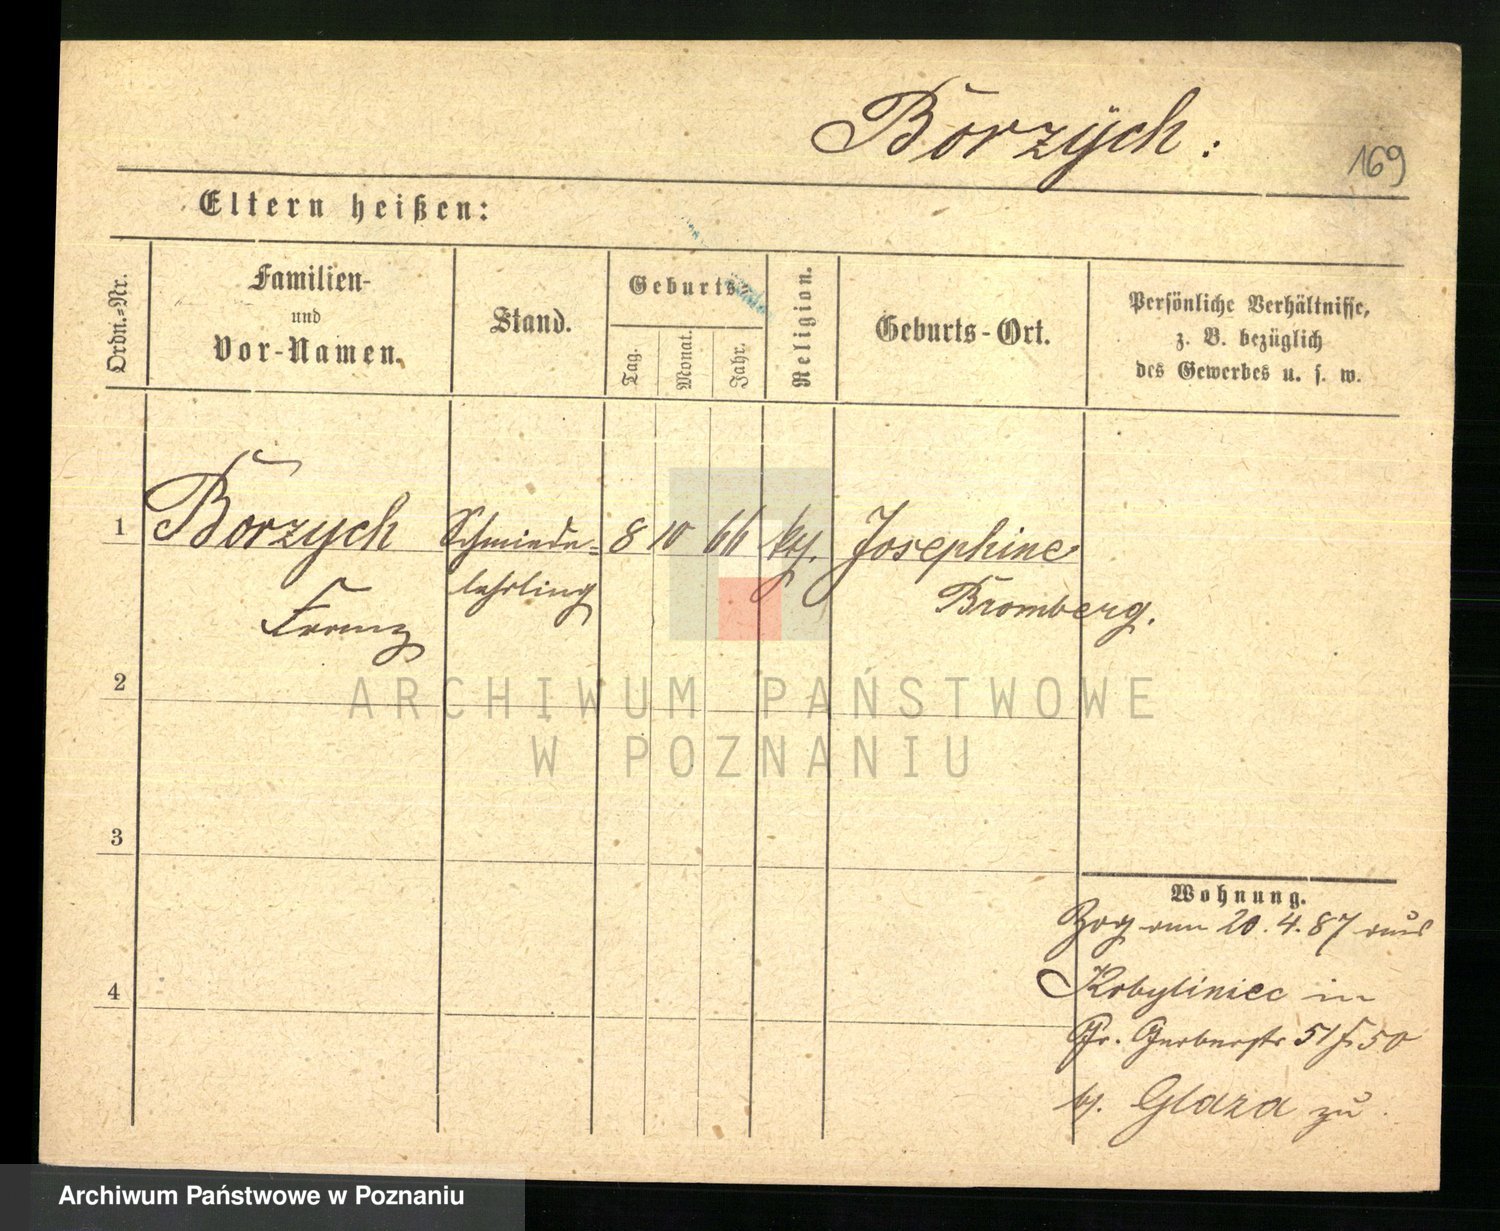 Borzÿch:
169
Eltern heißen:
Ordn.=Nr.
Familien-
und
Vor-Namen.
Stand.
Geburts-
Tag.
Monat.
Jahr.
Religion.
Geburts-Ort.
Persönliche Verhältnisse,
z. B. bezüglich
des Gewerbes u. s. w.
1 Borzych Schmiede= 8 10 66 kg. Josephine
lehrling Bromberg.
Franz
2
3
4
Wohnung.
Zog am 20.4.87 aus
Kobyliniec in
Gr. Gerberstr 51 50
b. Glaza zu.
ARCHIWUM PAŃSTWOWE
W POZNANIU
Archiwum Państwowe w Poznaniu